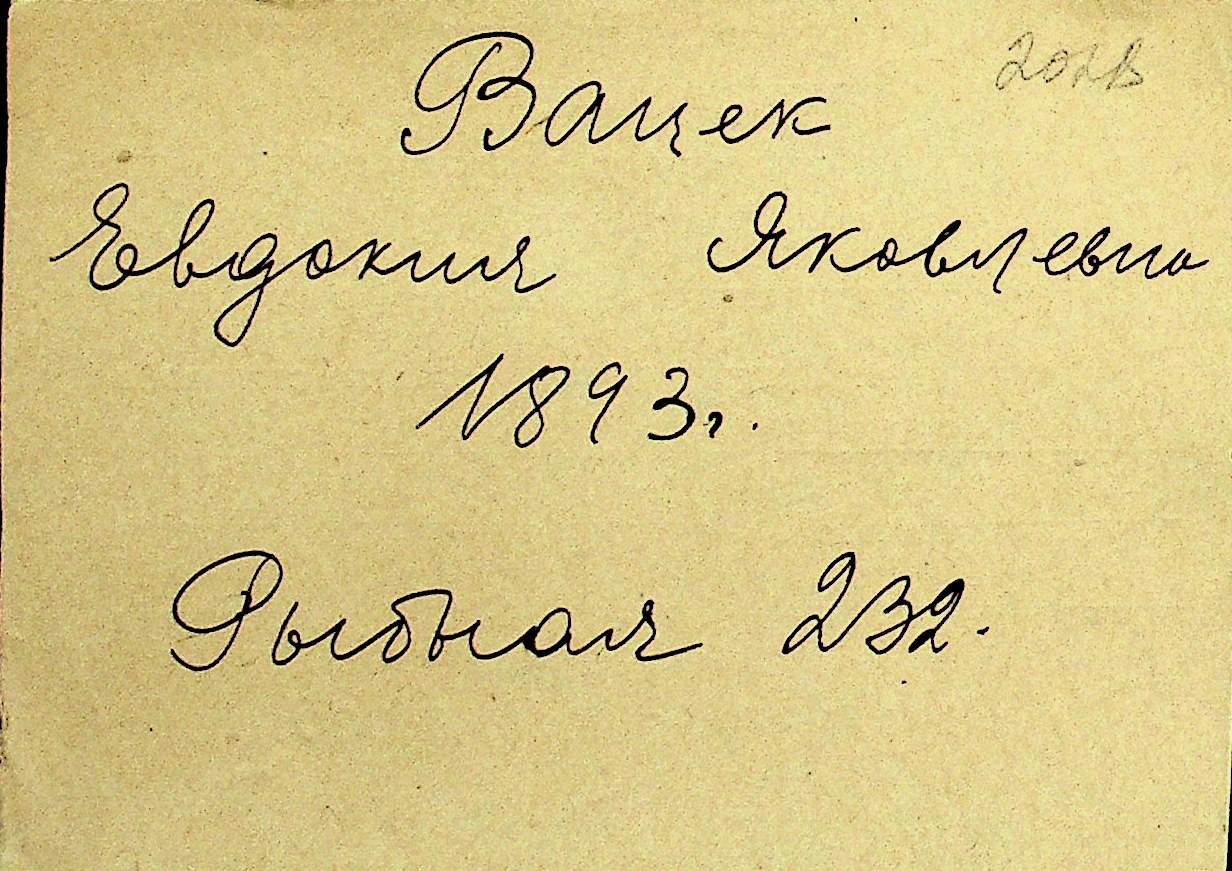 202В
Вацек
Евдокия Яковлевна
1893 г.
Рыбная 232.